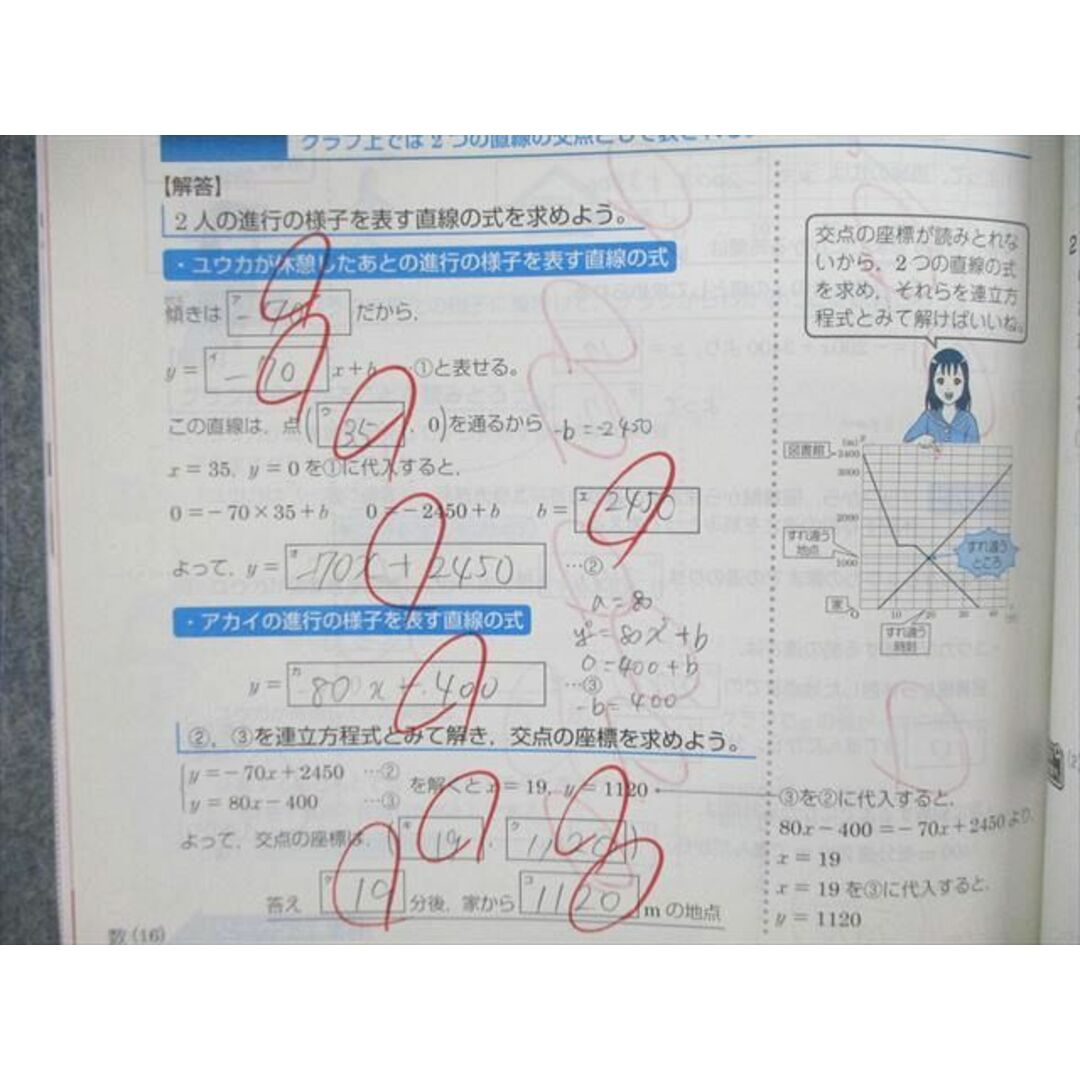 グラフ上では2つの直線の交点として表される。
【解答】
2人の進行の様子を表す直線の式を求めよう。
・ユウカが休憩したあとの進行の様子を表す直線の式
傾きは ア -70 だから,
y= イ -70 x+b …①と表せる。
この直線は, 点( ウ 35 , 0)を通るから -b=-2450
x=35, y=0を①に代入すると,
0=-70×35+b 0=-2450+b b= エ 2450
よって, y= オ -70x+2450 …②
a=80
・アカイの進行の様子を表す直線の式
y=80x+b
0=400+b
y= カ 80x-400 …③
-b=400
②, ③を連立方程式とみて解き, 交点の座標を求めよう。
y=-70x+2450 …②
y=80x-400 …③
を解くと x=19, y=1120
よって, 交点の座標は, ( キ 19 , ク 1120 )
答え ケ 19 分後, 家から コ 1120 mの地点
数(16)
交点の座標が読みとれな
いから, 2つの直線の式
を求め, それらを連立方
程式とみて解けばいいね。
(m) y
図書館 2400
3000
2000
すれ違う
地点
1000
すれ違う
ところ
家 O 10 20 30
すれ違う
時刻
③を②に代入すると,
80x-400=-70x+2450より,
x=19
x=19を③に代入すると,
y=1120
2
(2)